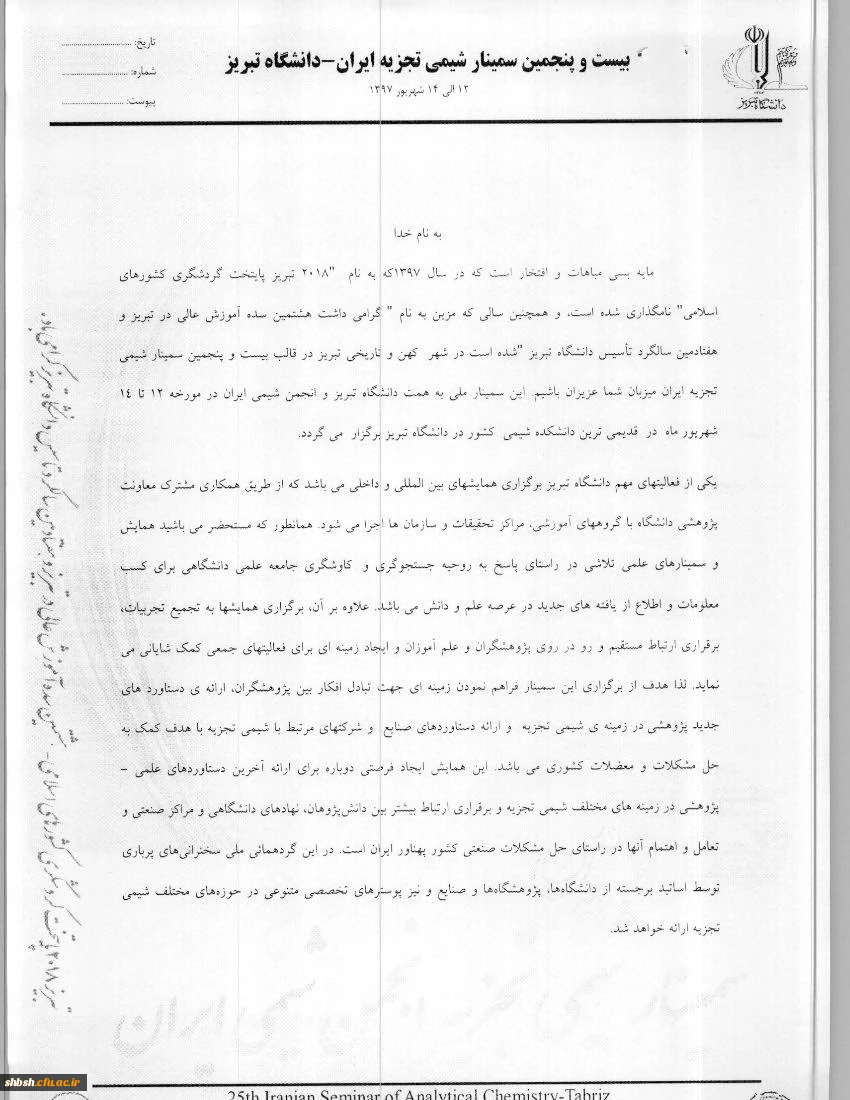 تاریخ: ........................
شماره: ........................
پیوست: ........................
بیست و پنجمین سمینار شیمی تجزیه ایران-دانشگاه تبریز
۱۲ الی ۱۴ شهریور ۱۳۹۷
دانشگاه تبریز
به نام خدا
مایه بسی مباهات و افتخار است که در سال ۱۳۹۷که به نام "۲۰۱۸ تبریز پایتخت گردشگری کشورهای
اسلامی" نامگذاری شده است، و همچنین سالی که مزین به نام " گرامی داشت هشتمین سده آموزش عالی در تبریز و
هفتادمین سالگرد تأسیس دانشگاه تبریز "شده است در شهر کهن و تاریخی تبریز در قالب بیست و پنجمین سمینار شیمی
تجزیه ایران میزبان شما عزیزان باشیم. این سمینار ملی به همت دانشگاه تبریز و انجمن شیمی ایران در مورخه ۱۲ تا ۱٤
شهریور ماه در قدیمی ترین دانشکده شیمی کشور در دانشگاه تبریز برگزار می گردد.
یکی از فعالیتهای مهم دانشگاه تبریز برگزاری همایشهای بین المللی و داخلی می باشد که از طریق همکاری مشترک معاونت
پژوهشی دانشگاه با گروههای آموزشی، مراکز تحقیقات و سازمان ها اجرا می شود. همانطور که مستحضر می باشید همایش
و سمینارهای علمی تلاشی در راستای پاسخ به روحیه جستجوگری و کاوشگری جامعه علمی دانشگاهی برای کسب
معلومات و اطلاع از یافته های جدید در عرصه علم و دانش می باشد. علاوه بر آن، برگزاری همایشها به تجمیع تجربیات،
برقراری ارتباط مستقیم و رو در روی پژوهشگران و علم آموزان و ایجاد زمینه ای برای فعالیتهای جمعی کمک شایانی می
نماید. لذا هدف از برگزاری این سمینار فراهم نمودن زمینه ای جهت تبادل افکار بین پژوهشگران، ارائه ی دستاورد های
جدید پژوهشی در زمینه ی شیمی تجزیه و ارائه دستاوردهای صنایع و شرکتهای مرتبط با شیمی تجزیه با هدف کمک به
حل مشکلات و معضلات کشوری می باشد. این همایش ایجاد فرصتی دوباره برای ارائه آخرین دستاوردهای علمی -
پژوهشی در زمینه های مختلف شیمی تجزیه و برقراری ارتباط بیشتر بین دانش‌پژوهان، نهادهای دانشگاهی و مراکز صنعتی و
تعامل و اهتمام آنها در راستای حل مشکلات صنعتی کشور پهناور ایران است. در این گردهمائی ملی سخنرانی‌های پرباری
توسط اساتید برجسته از دانشگاه‌ها، پژوهشگاه‌ها و صنایع و نیز پوسترهای تخصصی متنوعی در حوزه‌های مختلف شیمی
تجزیه ارائه خواهد شد.
تبریز ۲۰۱۸ پایتخت گردشگری کشورهای اسلامی - هشتمین سده آموزش عالی در تبریز و هفتادمین سالگرد تاسیس دانشگاه تبریز گرامی باد.
shbsh.cfu.ac.ir
25th Iranian Seminar of Analytical Chemistry-Tabriz